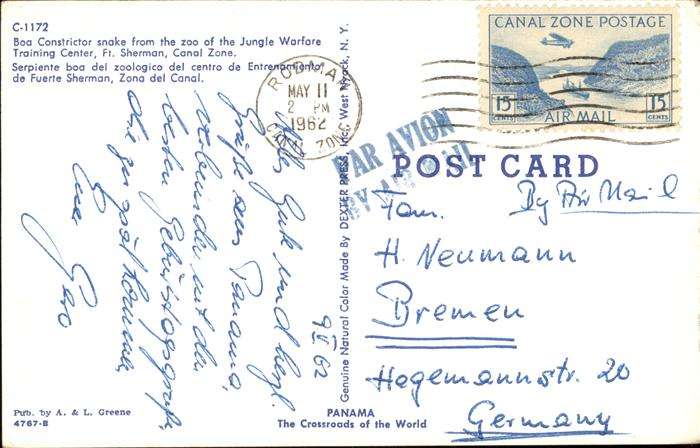 C-1172
Boa Constrictor snake from the zoo of the Jungle Warfare
Training Center, Ft. Sherman, Canal Zone.
Serpiente boa del zoologico del centro de Entrenamiento
de Fuerte Sherman, Zona del Canal.
RODMAN
MAY 11
2 PM
1962
CANAL ZONE
CANAL ZONE POSTAGE
15 CENTS
15 CENTS
AIR MAIL
PAR AVION
BY AIR MAIL
POST CARD
By Air Mail
Fam.
H. Neumann
Bremen
Hagemannstr. 20
Germany
9 62
Alles Gute und herzl.
Grüße aus Panama,
verbunden mit den
besten Geburtstagsgrüßen,
die zu spät kommen,
Euer
Gero
Genuine Natural Color Made By DEXTER PRESS, Inc., West Nyack, N. Y.
Pub. by A. & L. Greene
4767-B
PANAMA
The Crossroads of the World